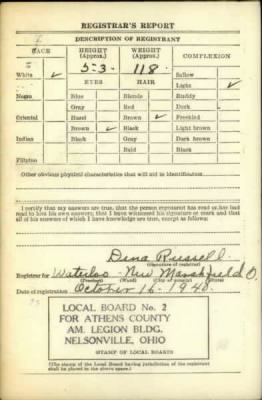 REGISTRAR'S REPORT
DESCRIPTION OF REGISTRANT
RACE HEIGHT (Approx.) WEIGHT (Approx.) COMPLEXION
5-3 118 Sallow
White ✓ EYES HAIR Light ✓
Negro Blue Blonde Ruddy
Gray Red Dark
Oriental Hazel Brown ✓ Freckled
Brown ✓ Black Light brown
Indian Black Gray Dark brown
Bald Black
Filipino
Other obvious physical characteristics that will aid in identification
I certify that my answers are true; that the person registered has read or has had
read to him his own answers; that I have witnessed his signature or mark and that
all of his answers of which I have knowledge are true, except as follows:
Dena Russell
(Signature of registrar)
Registrar for Waterloo - New Marshfield O.
(Precinct) (Ward) (City or county) (State)
Date of registration October 16 - 1940
LOCAL BOARD No. 2
FOR ATHENS COUNTY
AM. LEGION BLDG.
NELSONVILLE, OHIO
(STAMP OF LOCAL BOARD)
(The stamp of the Local Board having jurisdiction of the registrant
shall be placed in the above space.)